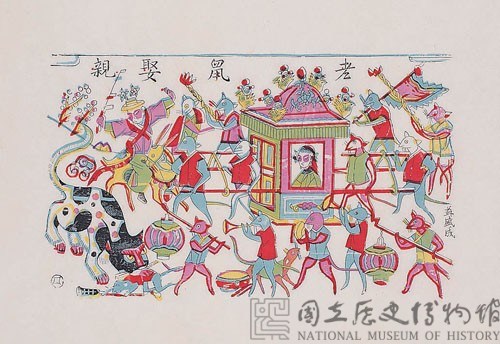 老鼠娶親
國立歷史博物館
NATIONAL MUSEUM OF HISTORY